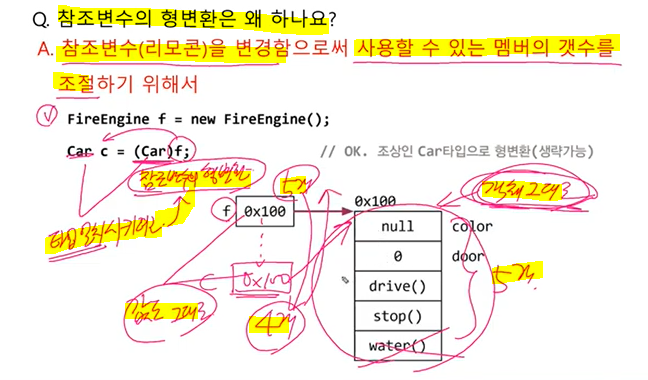 Q. 참조변수의 형변환은 왜 하나요?
A. 참조변수(리모콘)을 변경함으로써 사용할 수 있는 멤버의 갯수를
조절하기 위해서
FireEngine f = new FireEngine();
Car c = (Car)f; // OK. 조상인 Car타입으로 형변환(생략가능)
참조변수의 형변환
5개
객체 그대로
타입 일치시키려고
f 0x100
0x100
null color
0 door
c 0x100
drive()
5개
값도 그대로
4개
stop()
water()